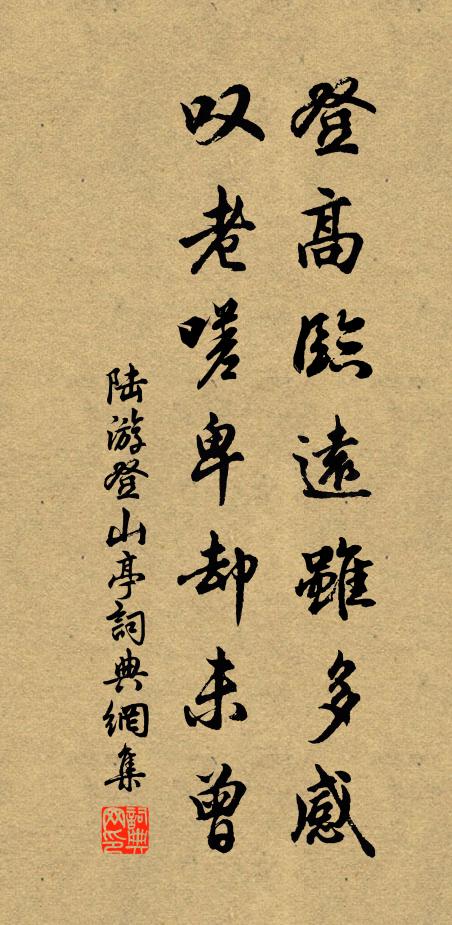 登高臨遠雖多感
叹老嗟卑却未曾
陆游登山亭詞典網集
詞典
网印